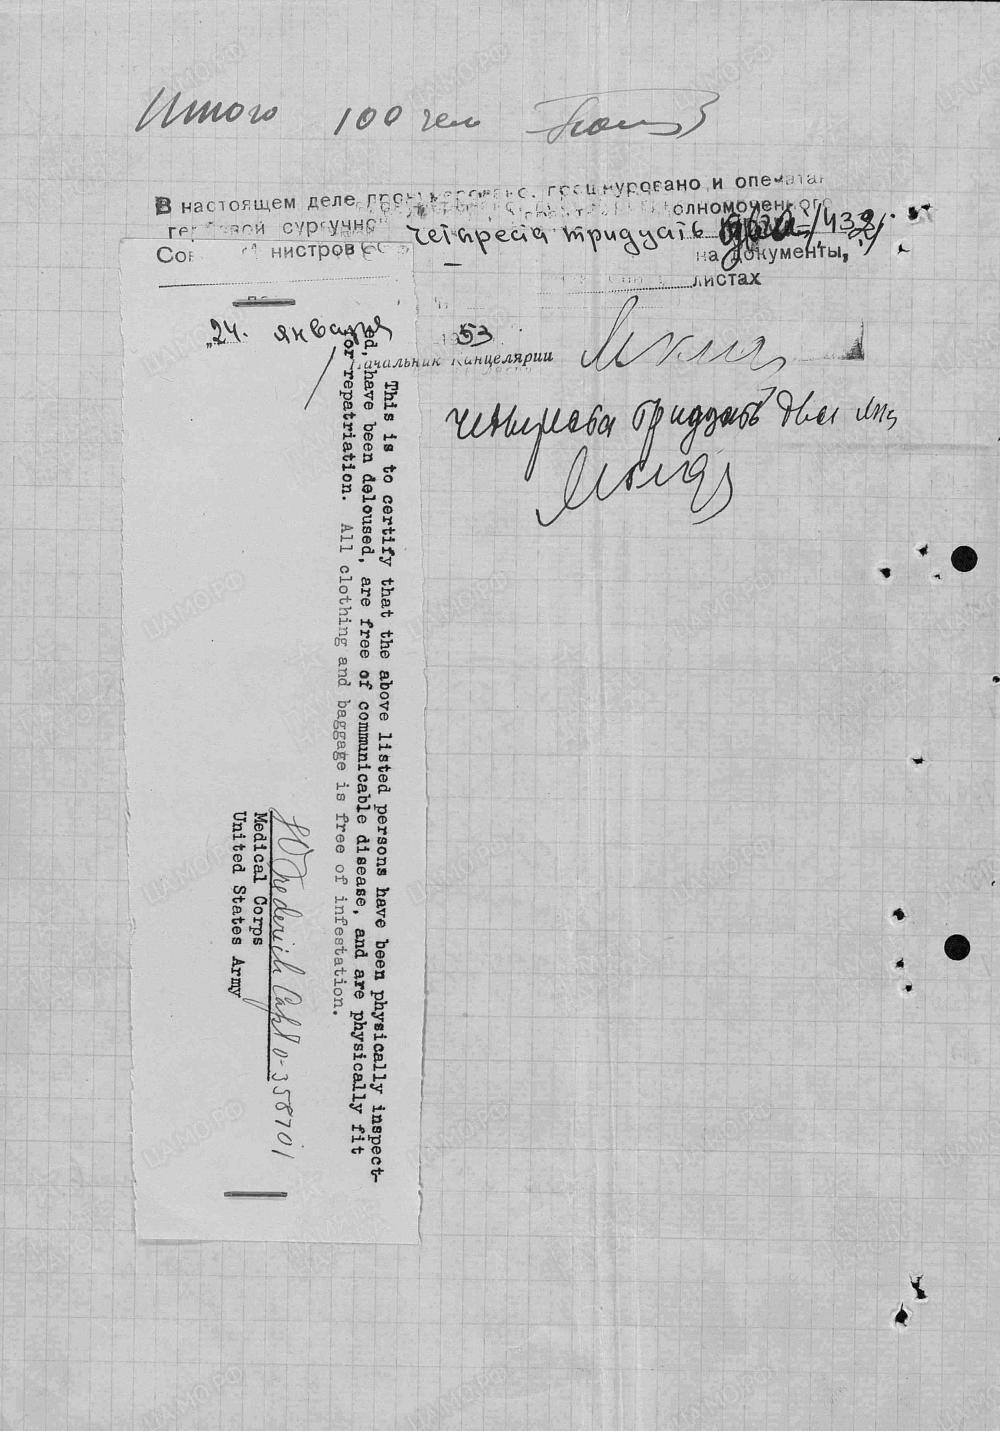 Итого 100 чел
В настоящем деле пронумеровано, прошнуровано и опечатан
гербовой сургучной олномоченного
Сов инистров четыреста тридцать /432/
на документы,
листах
„24. января 1953
Начальник Канцелярии
четыреста тридцать два
This is to certify that the above listed persons have been physically inspect-
ed, have been deloused, are free of communicable disease, and are physically fit
for repatriation. All clothing and baggage is free of infestation.
Frederich Capt 0-358701
Medical Corps
United States Army